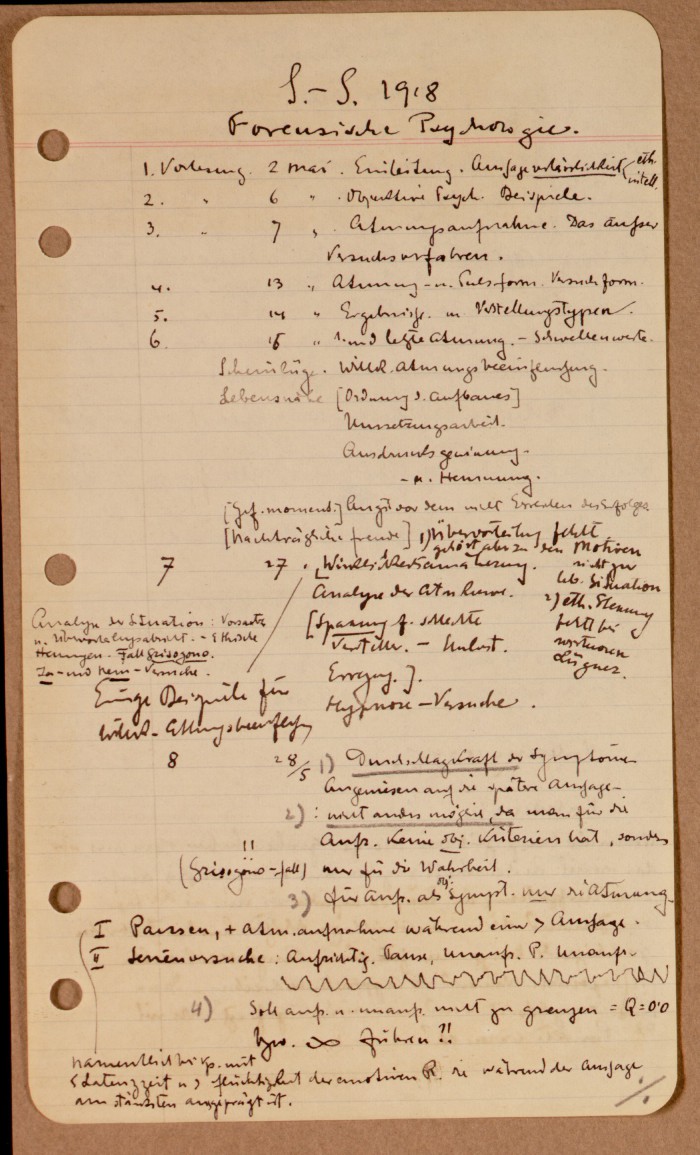 S.-S. 1918
Forensische Psychologie.
1. Vorlesung. 2 Mai. Einleitung. Aussageverlässlichkeit eth. intell.
2. " 6 " . Objektive Psych. Beispiele.
3. " 7 " . Atmungsaufnahme. Das äussere
Versuchsverfahren.
4. 13 " Atmung- u. Pulsform. Versuchsform.
5. 14 " Ergebnisse. u. Verstellungstypen.
6. 15 " 1. und letzte Atmung. - Schwellenwerte.
Scheinlüge. Willk. Atmungsbeeinflussung.
Lebensnähe [Ordnung d. Aufbaues]
Umsetzungsarbeit.
Ausdrucksgewinnung.
- u. Hemmung.
Angst vor dem nicht Erreichen des Erfolges
[Nachträgliche Freude] 1) Übervorteilung fehlt
gehört aber zu den Motiven
7 27 . [Wirklichkeitsannäherung. nicht zur
Analyse der Atmkurve. Situation
2) eth. Hemmung
[Spannung f. schlechte fehlt bei
Versteller. - Unlust. Lügner.
Analyse der Situation:
- Ethische
Hemmungen. Fall Grisogono.
Ja- und Nein-Versuche.
Erregung.].
Einige Beispiele für
willk. Atmungsbeeinflussung
Hypnose-Versuche.
8 28/5 1) Durchschlagskraft der Symptome
Angewiesen auf die spätere Aussage
2) : nicht anders möglich, da man für die
Aufr. keine obj. Kriterien hat, sondern
!! (Grisogono-Fall) nur für die Wahrheit.
3) für Aufr. als obj. Sympt. nur die Atmung
I Pausen, + Atm. aufnahme während einer > Aussage.
II Serienversuche: Aufrichtig. Pause, Unaufr. P. Unaufr.
4) Soll aufr. u. unaufr. nicht zu grenzen = Q=0'0
bzw. ∞ führen!!
namentlich bei Vp. mit
< Latenzzeit u. > Flüchtigkeit der emotiven R. die während der Aussage
am stärksten ausgeprägt ist.
./.